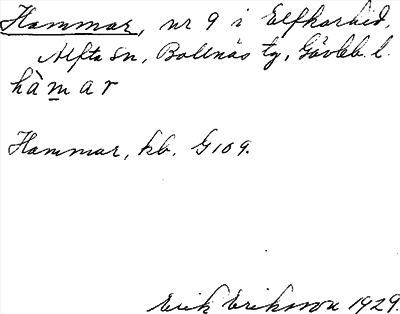 Hammar, nr 9 i Elfkarhed,
Alfta sn, Bollnäs tg, Gävleb. l.
hàm̲ar
Hammar, kb. G109.
Erik Eriksson 1929.